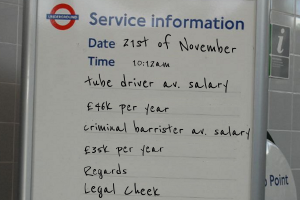 UNDERGROUND
Service information
Date 21st of November
Time 10:12am
tube driver av. salary
£46k per year
criminal barrister av. salary
£35k per year
Regards
Legal Cheek
i
Point